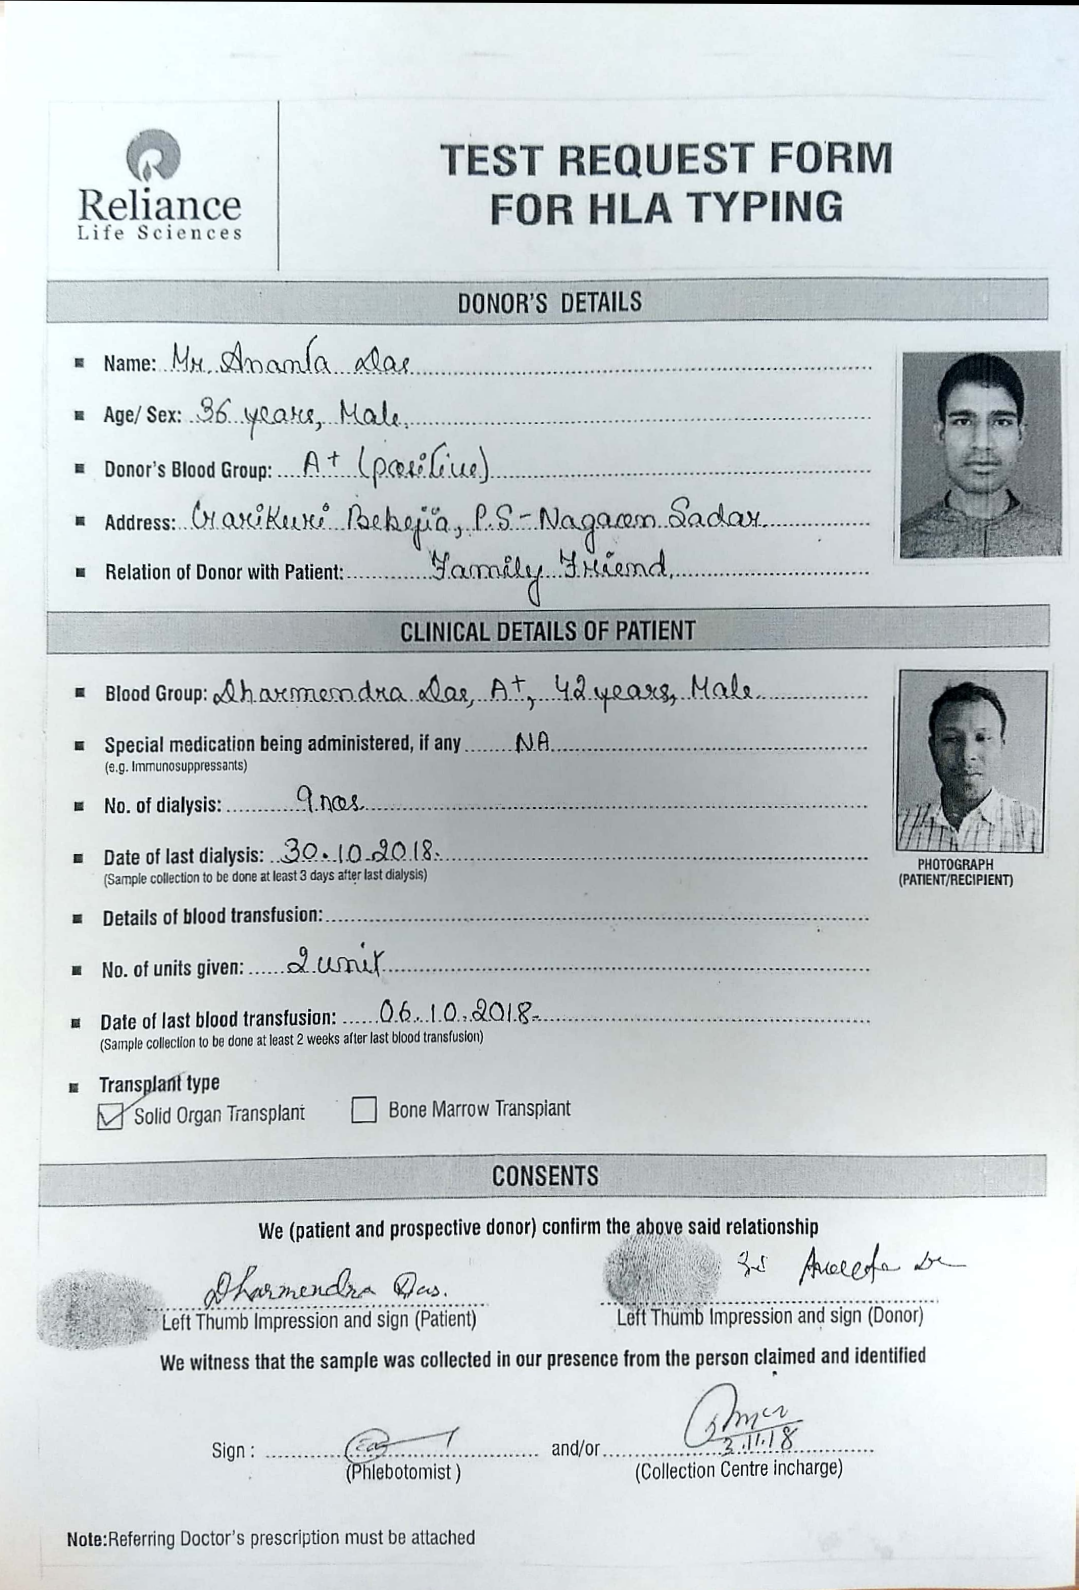 Reliance
Life Sciences
TEST REQUEST FORM
FOR HLA TYPING
DONOR'S DETAILS
Name: Mr. Ananta Das
Age/ Sex: 36 years, Male.
Donor's Blood Group: A+ (positive)
Address: Garikuri Bebejia, P.S-Nagaon Sadar
Relation of Donor with Patient: Family Friend
CLINICAL DETAILS OF PATIENT
Blood Group: Dharmendra Das, A+, 42 years, Male
Special medication being administered, if any NA
(e.g. Immunosuppressants)
No. of dialysis: 9 nos
Date of last dialysis: 30.10.2018.
(Sample collection to be done at least 3 days after last dialysis)
PHOTOGRAPH
(PATIENT/RECIPIENT)
Details of blood transfusion:
No. of units given: 2 unit
Date of last blood transfusion: 06.10.2018
(Sample collection to be done at least 2 weeks after last blood transfusion)
Transplant type
Solid Organ Transplant Bone Marrow Transplant
CONSENTS
We (patient and prospective donor) confirm the above said relationship
Dharmendra Das.
Left Thumb Impression and sign (Patient) Left Thumb Impression and sign (Donor)
We witness that the sample was collected in our presence from the person claimed and identified
3.11.18
Sign : and/or
(Phlebotomist ) (Collection Centre incharge)
Note:Referring Doctor's prescription must be attached